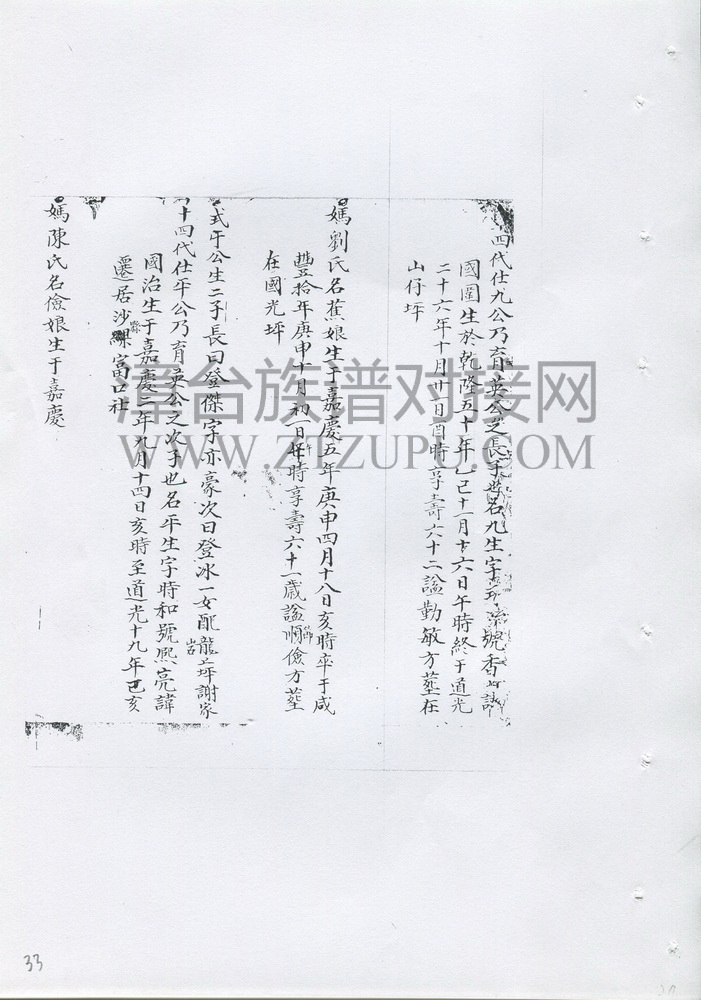 四代仕九公乃育英公之長子也名九生字號香諱
國圍生於乾隆五十年乙巳十一月十六日午時終于道光
二十六年十月廿一日酉時享壽六十二謚勤敏方塟在
山仔坪
媽劉氏名蕉娘生于嘉慶五年庚申四月十八日亥時卒于咸
豐拾年庚申十月初一日午時享壽六十一歲謚順儉方塟
在國光坪
式于公生二子長曰登傑字亦豪次曰登冰一女配龍岩坪謝家
十四代仕平公乃育英公之次子也名平生字時和號熙亮諱
國治生于嘉慶二年九月十四日亥時至道光十九年己亥
遷居沙縣富口社
媽陳氏名儉娘生于嘉慶
漳台族谱对接网
WWW.ZTZUPU.COM
33